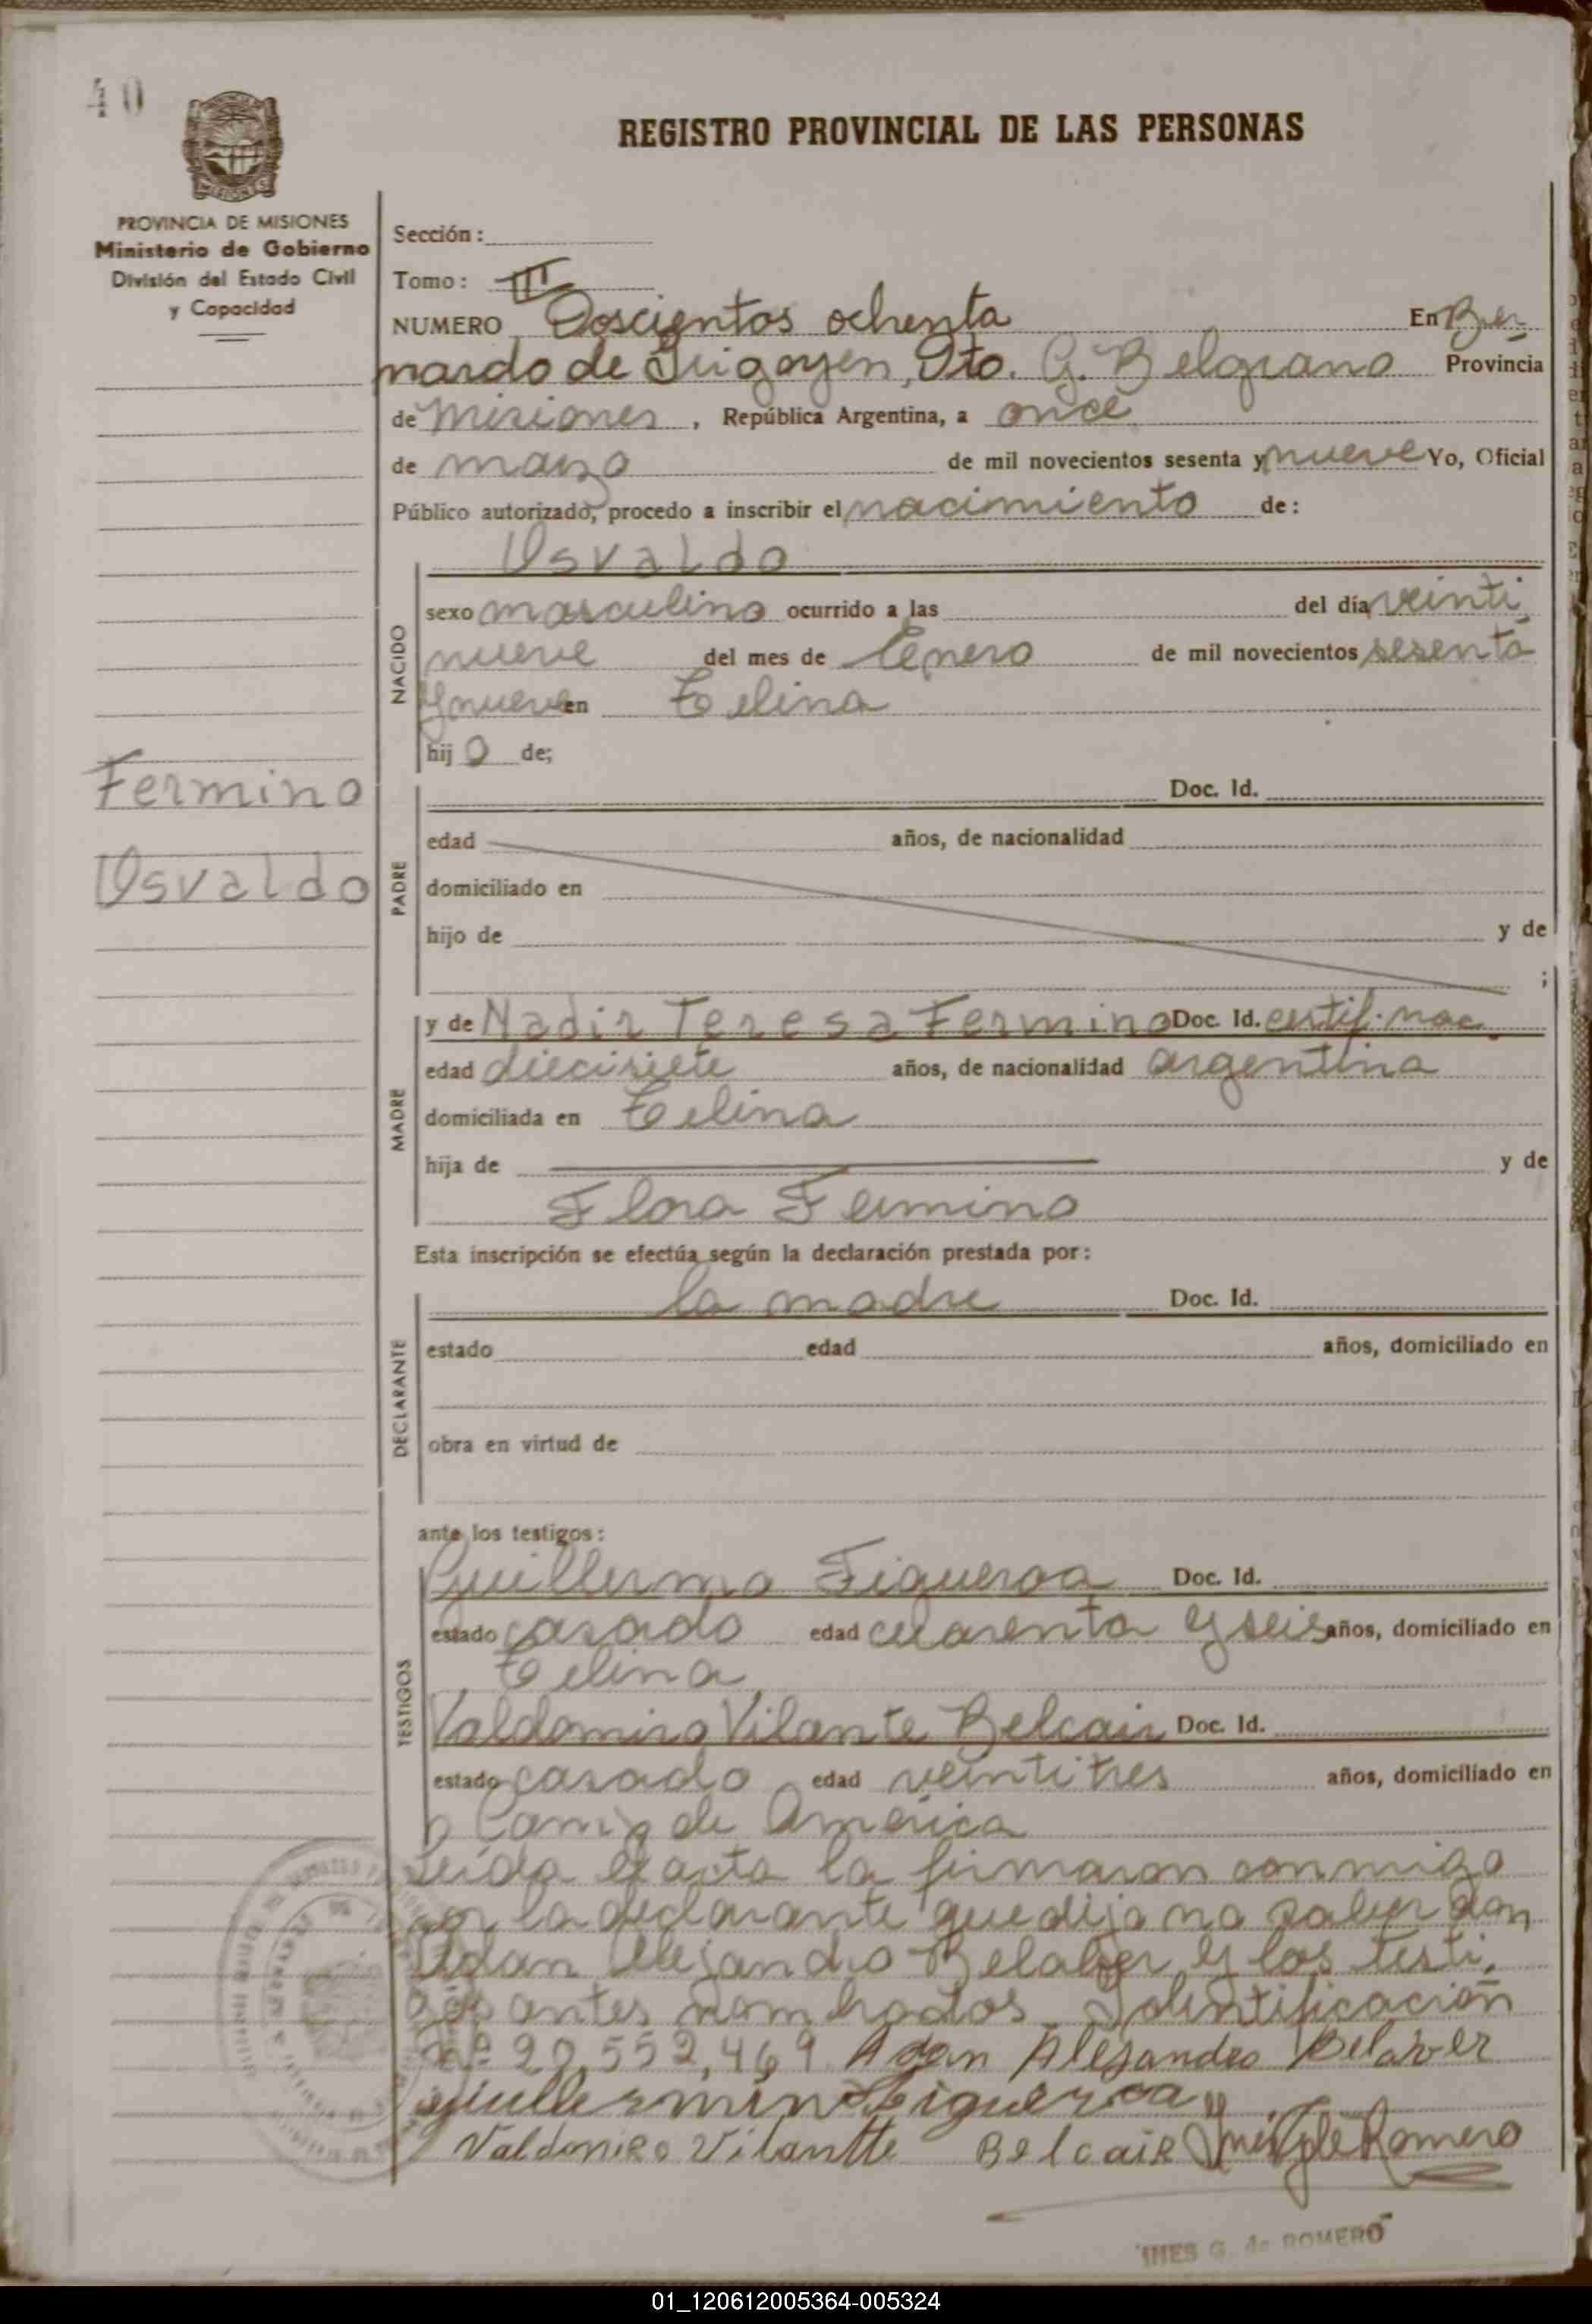 40
REGISTRO PROVINCIAL DE LAS PERSONAS
PROVINCIA DE MISIONES
Ministerio de Gobierno
División del Estado Civil
y Capacidad
Sección:
Tomo: III
NUMERO Doscientos ochenta En Ber
nardo de Irigoyen, Dto. G. Belgrano Provincia
de Misiones, República Argentina, a once
de marzo de mil novecientos sesenta y nueve Yo, Oficial
Público autorizado, procedo a inscribir el nacimiento de:
Osvaldo
NACIDO
sexo masculino ocurrido a las del día veinti
nueve del mes de Enero de mil novecientos sesenta
y nueve en Celina
hijo de;
Fermino
Osvaldo
PADRE
Doc. Id.
edad años, de nacionalidad
domiciliado en
hijo de y de
;
MADRE
y de Nadir Teresa Fermino Doc. Id. certif. nac.
edad diecisiete años, de nacionalidad argentina
domiciliada en Celina
hija de y de
Flora Fermino
Esta inscripción se efectúa según la declaración prestada por:
DECLARANTE
la madre Doc. Id.
estado edad años, domiciliado en
obra en virtud de
ante los testigos:
TESTIGOS
Guillermo Figueroa Doc. Id.
estado casado edad cuarenta y seis años, domiciliado en
Celina
Valdomiro Vilante Belcair Doc. Id.
estado casado edad veintitres años, domiciliado en
de América
Leída el acta la firmaron conmigo
por la declarante que dijo no saber don
Adan Alejandro Belaber y los testi
gos antes nombrados. Identificación
Nº 552,469 Adan Alejandro Belaver
Figueroa
Valdomiro Vilantte Belcair Romero
INES G. de ROMERO
01_120612005364-005324